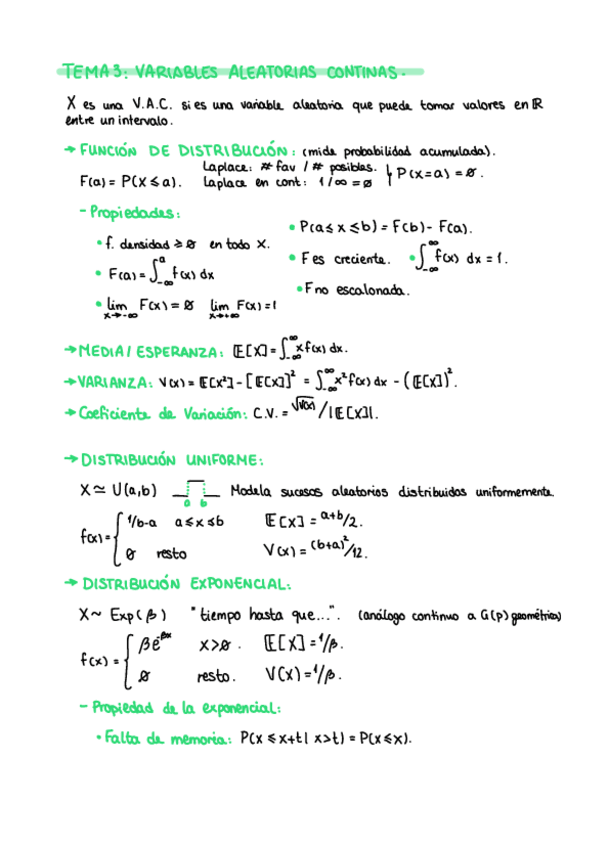 TEMA 3: VARIABLES ALEATORIAS CONTINAS.
X es una V.A.C. si es una variable aleatoria que puede tomar valores en ℝ
entre un intervalo.
→ FUNCIÓN DE DISTRIBUCIÓN: (mide probabilidad acumulada).
F(a) = P(X ≤ a). Laplace: # fav / # posibles.
Laplace en cont: 1/∞ = 0 } P(x=a) = 0.
- Propiedades:
• f. densidad ≥ 0 en todo x.
• F(a) = ∫_{-∞}^{a} f(x) dx
• lim_{x→-∞} F(x) = 0 lim_{x→+∞} F(x) = 1
• P(a ≤ x ≤ b) = F(b) - F(a).
• F es creciente. • ∫_{-∞}^{∞} f(x) dx = 1.
• F no escalonada.
→ MEDIA / ESPERANZA: E[X] = ∫_{-∞}^{∞} x f(x) dx.
→ VARIANZA: V(x) = E[X²] - [E[X]]² = ∫_{-∞}^{∞} x² f(x) dx - (E[X])².
→ Coeficiente de Variación: C.V. = √V(x) / |E[X]|.
→ DISTRIBUCIÓN UNIFORME:
X ≃ U(a,b) a b Modela sucesos aleatorios distribuidos uniformemente.
f(x) = { 1/b-a a ≤ x ≤ b E[X] = a+b/2.
0 resto V(x) = (b+a)²/12.
→ DISTRIBUCIÓN EXPONENCIAL:
X ~ Exp(β) "tiempo hasta que...". (análogo continuo a G(p) geométrica)
f(x) = { βe^{-βx} x>0. E[X] = 1/β.
0 resto. V(X) = 1/β.
- Propiedad de la exponencial:
• Falta de memoria: P(X ≤ x+t | x>t) = P(X ≤ x).